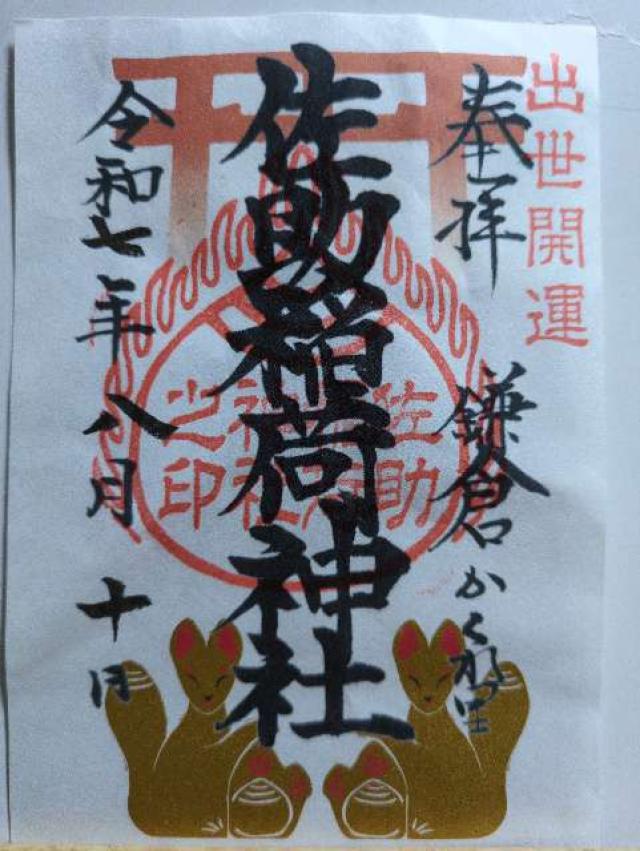 出世開運
奉拝
鎌倉かくれ里
佐助稲荷神社
佐助稲荷神社之印
令和七年八月十日